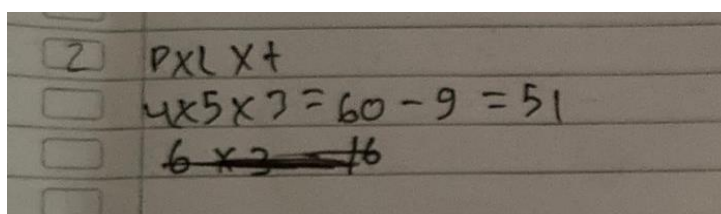 2 pxl xt
4x5x3 = 60 - 9 = 51
6 x 3 = 16